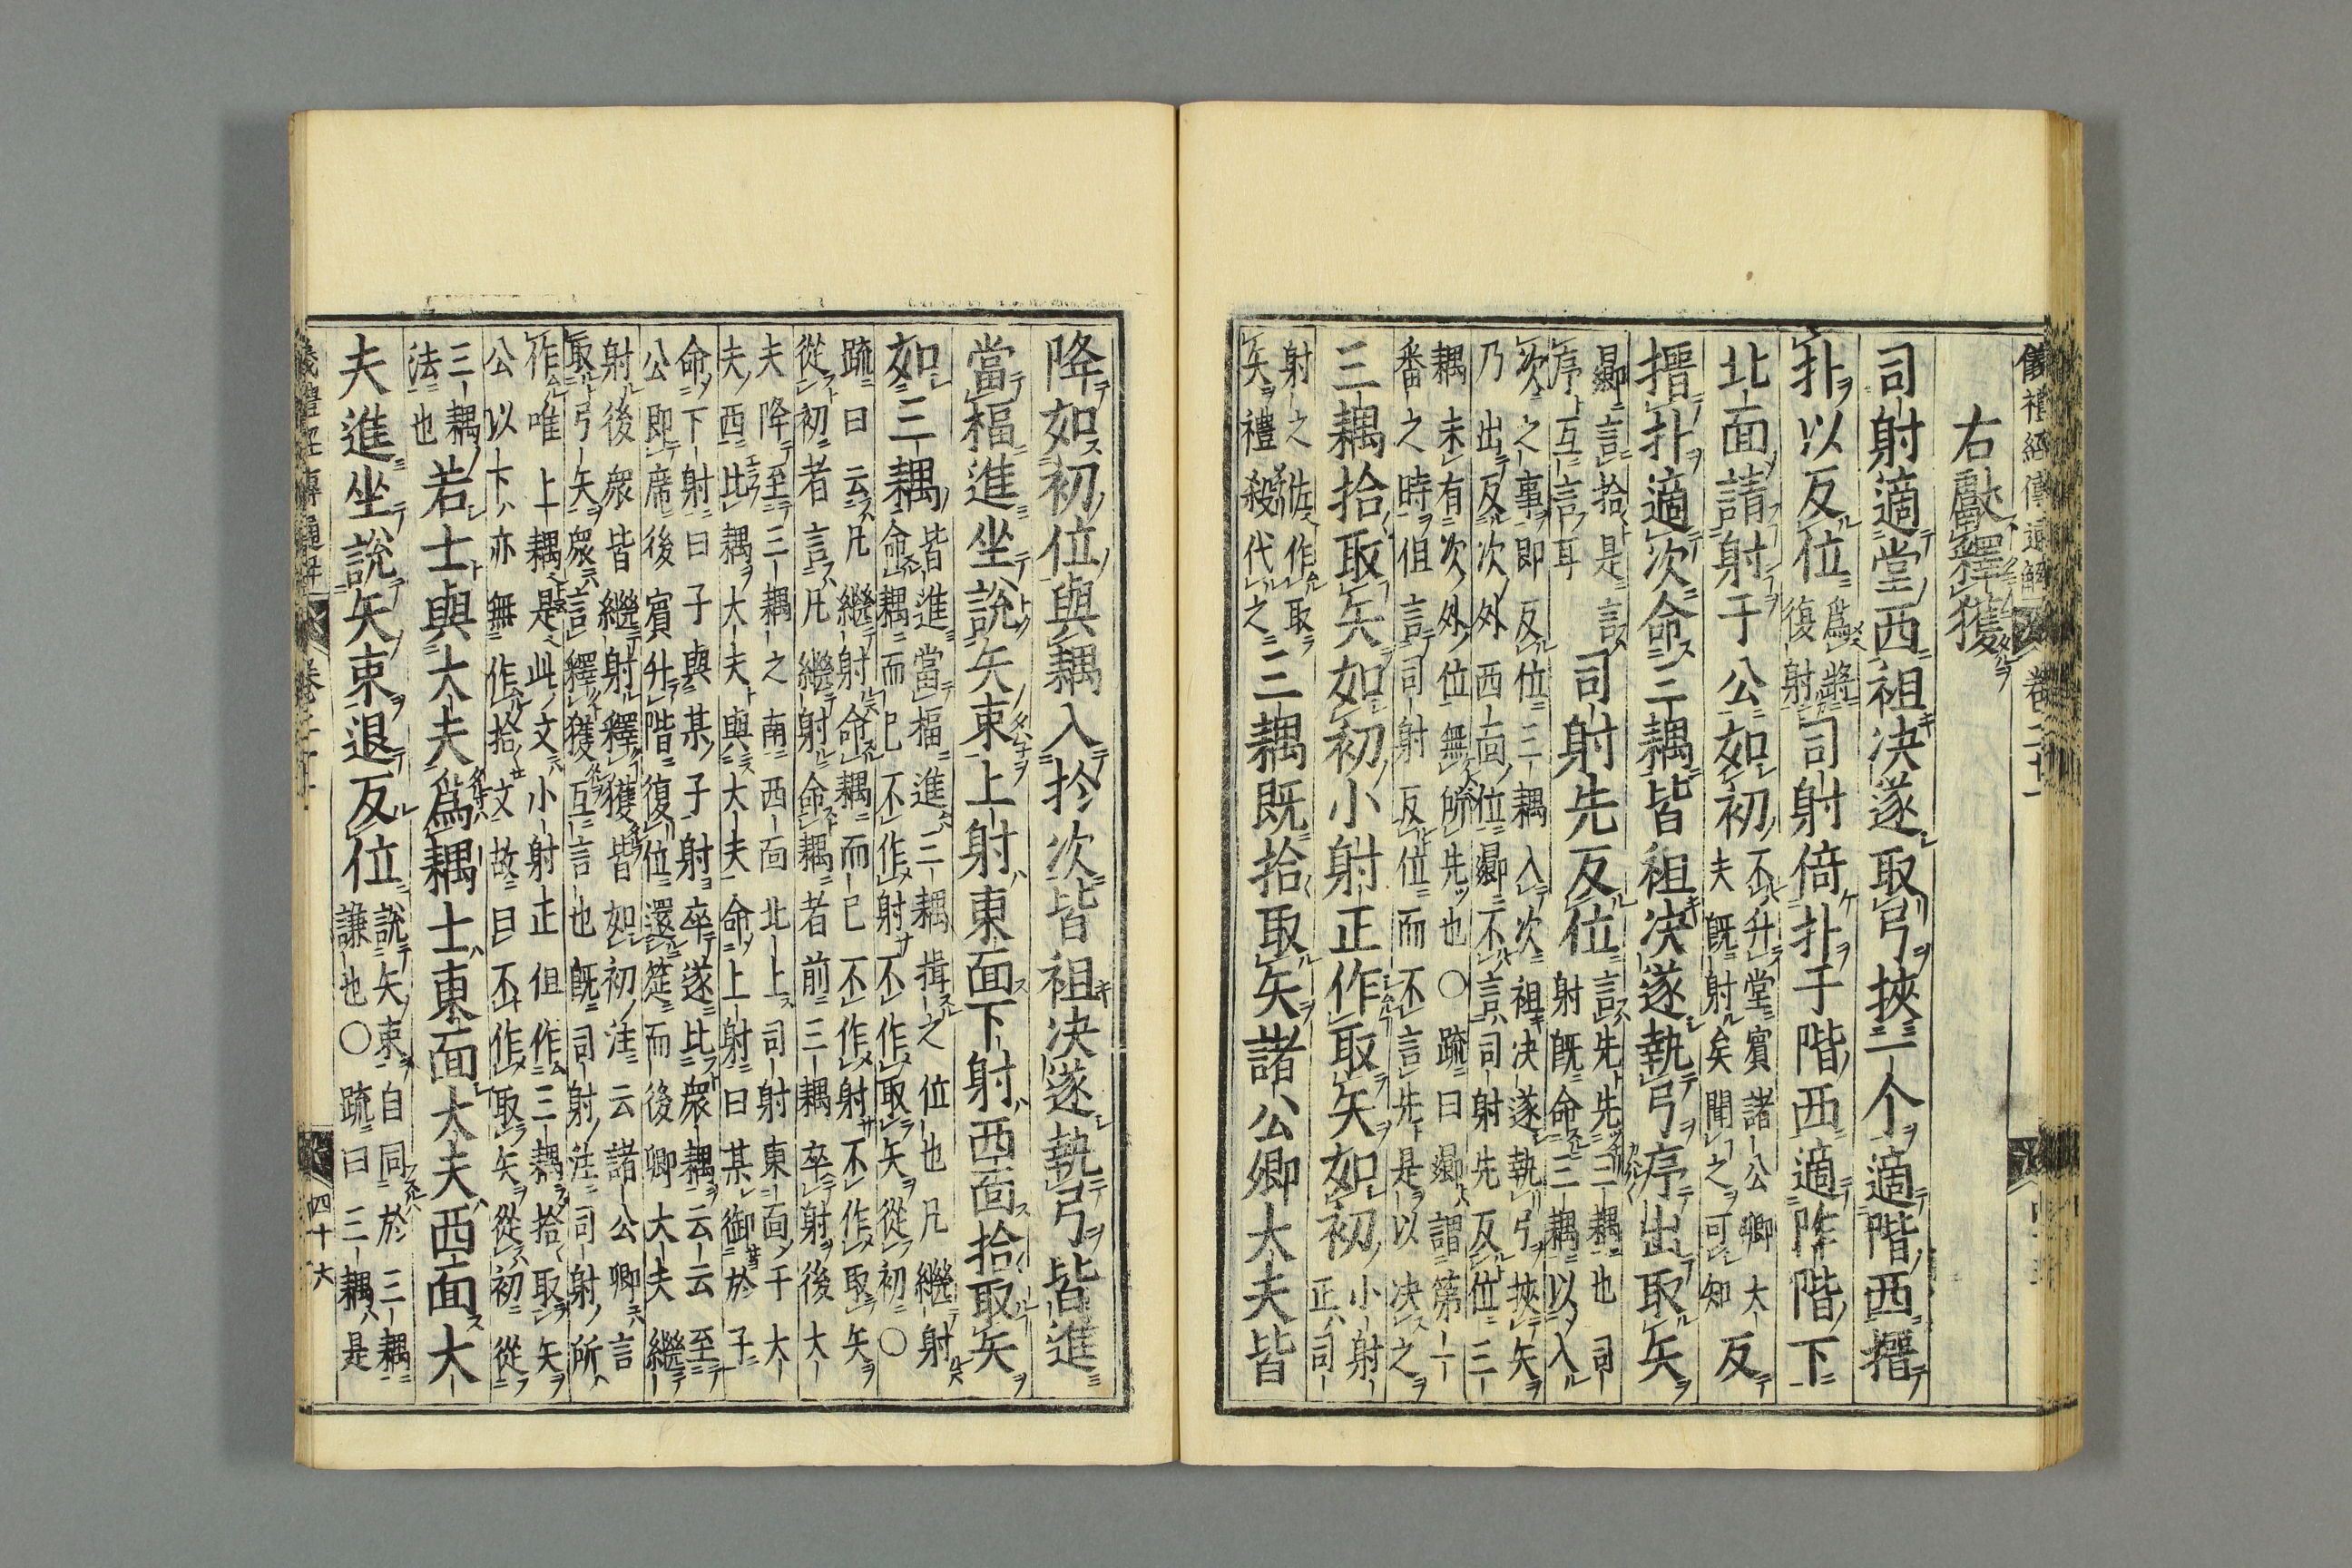 儀禮經傳通解 卷二十一
右獻釋獲
司射適堂西袒決遂取弓挾三个適階西搢
扑以反位爲將復射司射倚扑于階西適阼階下
北面請射于公如初不升堂賓諸公卿大夫既射矣聞之可知反
搢扑適次命三耦皆袒決遂執弓序出取矢
曏言拾是言序互言耳司射先反位言先先三耦也司射既命三耦以入
次之事即反位三耦入次袒決遂執弓挾矢
乃出反次外西面位曏不言司射先反位三
耦未有次外位無所先也〇疏曰曏謂第一
番之時但言司射反位而不言先是以決之
三耦拾取矢如初小射正作取矢如初小射正司
射之佐作取矢禮殺代之三耦既拾取矢諸公卿大夫皆
降如初位與耦入於次皆袒決遂執弓皆進
當楅進坐說矢束上射東面下射西面拾取矢
如三耦皆進當楅進三耦揖之位也凡繼射命耦而已不作射不作取矢從初〇
疏曰云凡繼射命耦而已不作射不作取矢
從初者言凡繼射命耦者前三耦卒射後大
夫降至三耦之南西面北上司射東面于大
夫西比耦大夫與大夫命上射曰某御於子
命下射曰子與某子射卒遂比衆耦云云至
公即席後賓升階復位還筵而後卿大夫繼
射後衆皆繼射釋獲皆如初注云諸公卿言
取弓矢衆言釋獲互言也既司射注司射所
作唯上耦是此文小射正但作三耦拾取矢
公以下亦無作拾文故曰不作取矢從初從
三耦法也若士與大夫爲耦士東面大夫西面大
夫進坐說矢束退反位說矢束自同於三耦謙也〇疏曰三耦是
儀禮經傳通解 卷二十一 四十六